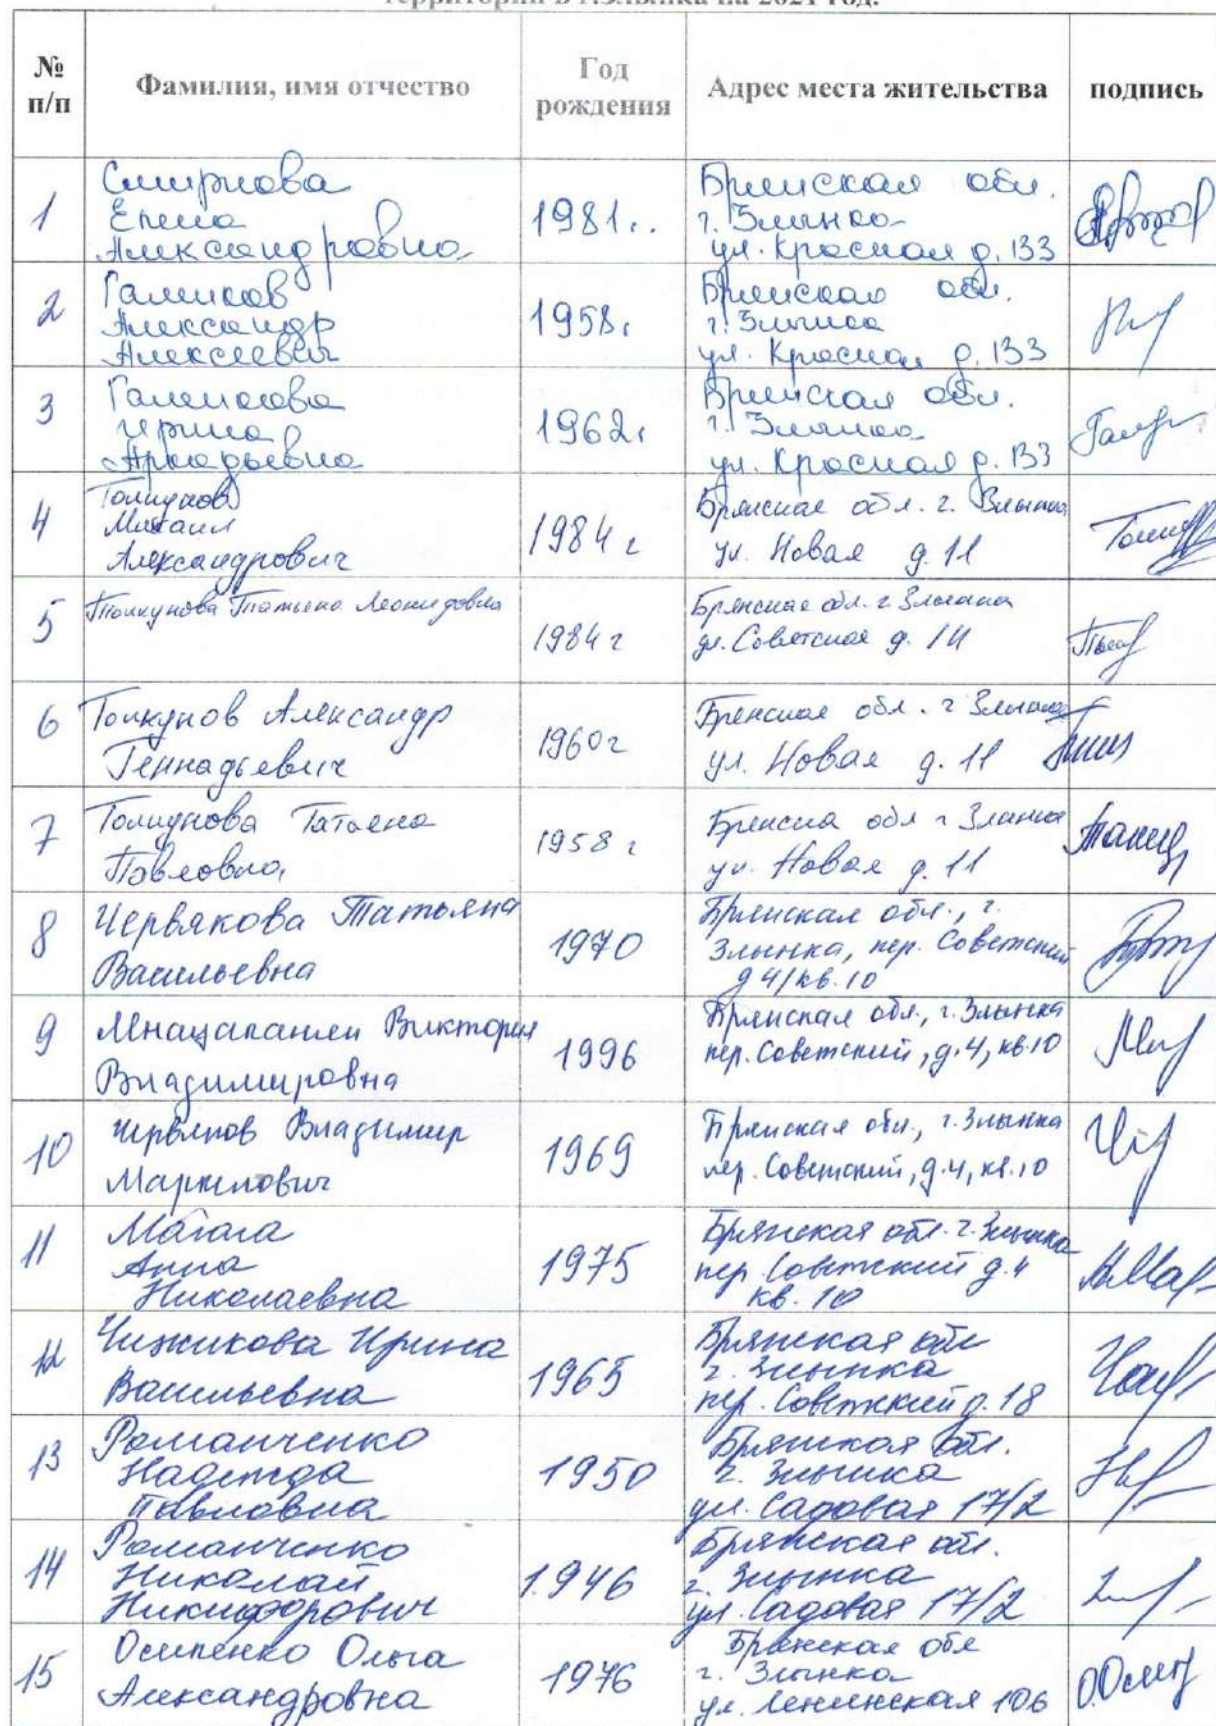 территории в г.Злынка на 2021 год.
№ п/п Фамилия, имя отчество Год рождения Адрес места жительства подпись
1 Смирнова Елена Александровна 1981г. Брянская обл. г. Злынка ул. Красная д. 133
2 Александр Алексеевич 1958г Брянская обл. г. Злынка ул. Красная д. 133
3 Ирина Аркадьевна 1962г Брянская обл. г. Злынка ул. Красная д. 133
4 Толкунов Михаил Александрович 1984 г Брянская обл. г. Злынка ул. Новая д. 11
5 Толкунова Татьяна Леонидовна 1984 г Брянская обл. г Злынка ул. Советская д.
6 Толкунов Александр Геннадьевич 1960 г Брянская обл. г Злынка ул. Новая д. 11
7 Толкунова Татьяна Павловна 1958 г обл г Злынка ул. Новая д. 11
8 Червякова Татьяна Васильевна 1970 Брянская обл., г. Злынка, пер. Советский д 4/кв. 10
9 Мнацаканян Виктория Владимировна 1996 Брянская обл., г. Злынка пер. Советский, д.4, кв.10
10 Червяков Владимир 1969 Брянская обл., г. Злынка пер. Советский, д.4, кв.10
11 Анна Николаевна 1975 Брянская обл. г. Злынка пер. Советский д. 4 кв. 10
12 Чижикова Ирина Васильевна 1965 Брянская обл г. Злынка пер. Советский д. 18
13 Романченко Надежда Павловна 1950 Брянская обл. г. Злынка ул. Садовая 17/2
14 Романченко Николай Никифорович 1946 Брянская обл. г. Злынка ул. Садовая 17/2
15 Осипенко Ольга Александровна 1976 Брянская обл г. Злынка ул. Ленинская 106